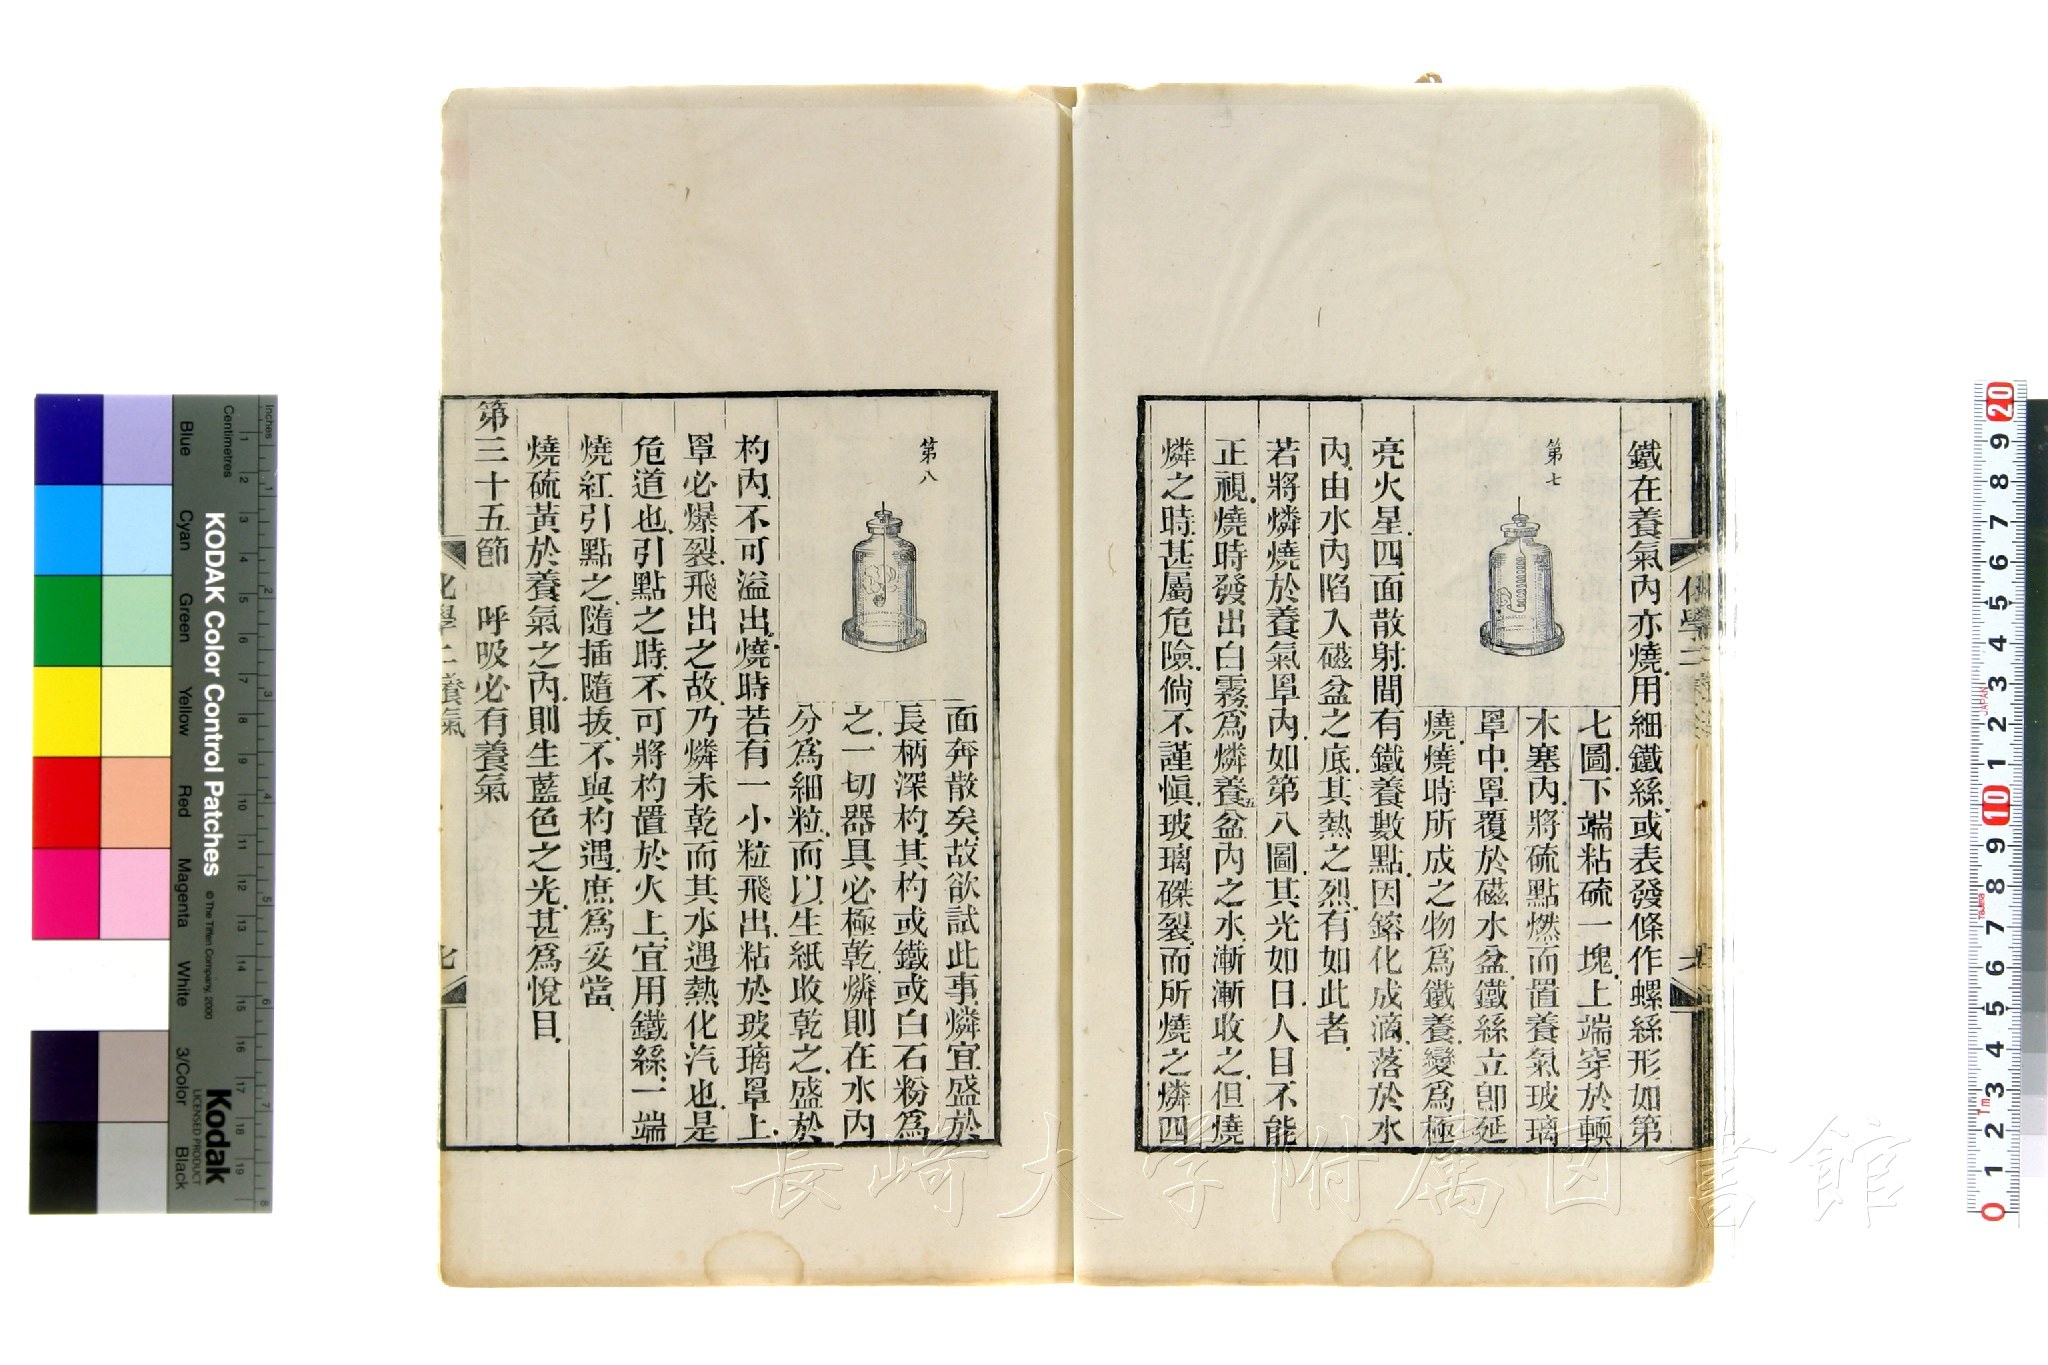 鐵在養氣內亦燒.用細鐵絲.或表發條作螺絲形如第
第七
七圖.下端粘硫一塊.上端穿於輭
木塞內.將硫點燃.而置養氣玻璃
罩中.罩覆於磁水盆.鐵絲立卽延
燒.燒時所成之物爲鐵養.變爲極
亮火星.四面散射.間有鐵養數點.因鎔化成滴.落於水
內.由水內陷入磁盆之底.其熱之烈.有如此者.
若將燐燒於養氣罩內.如第八圖.其光如日.人目不能
正視.燒時發出白霧.爲燐養五.盆內之水.漸漸收之.但燒
燐之時.甚屬危險.倘不謹愼.玻璃磔裂.而所燒之燐四
化學二
第八
面奔散矣.故欲試此事.燐宜盛於
長柄深杓.其杓或鐵或白石粉爲
之.一切器具必極乾.燐則在水內
分爲細粒.而以生紙收乾之.盛於
杓內.不可溢出.燒時若有一小粒飛出.粘於玻璃罩上.
罩必爆裂.飛出之故.乃燐未乾而其水遇熱化汽也.是
危道也.引點之時.不可將杓置於火上.宜用鐵絲.一端
燒紅引點之.隨插隨拔.不與杓遇.庶爲妥當.
燒硫黃於養氣之內.則生藍色之光.甚爲悅目.
第三十五節 呼吸必有養氣
化學二 養氣 七
長崎大学附属図書館
Inches
Centimetres
1 2 3 4 5 6 7 8
1 2 3 4 5 6 7 8 9 10 11 12 13 14 15 16 17 18 19
KODAK Color Control Patches
© The Tiffen Company, 2000
Kodak
LICENSED PRODUCT
Blue
Cyan
Green
Yellow
Red
Magenta
White
3/Color
Black
20 9 8 7 6 5 4 3 2 1 10 9 8 7 6 5 4 3 2 1 0
JAPAN
Tajima
1m